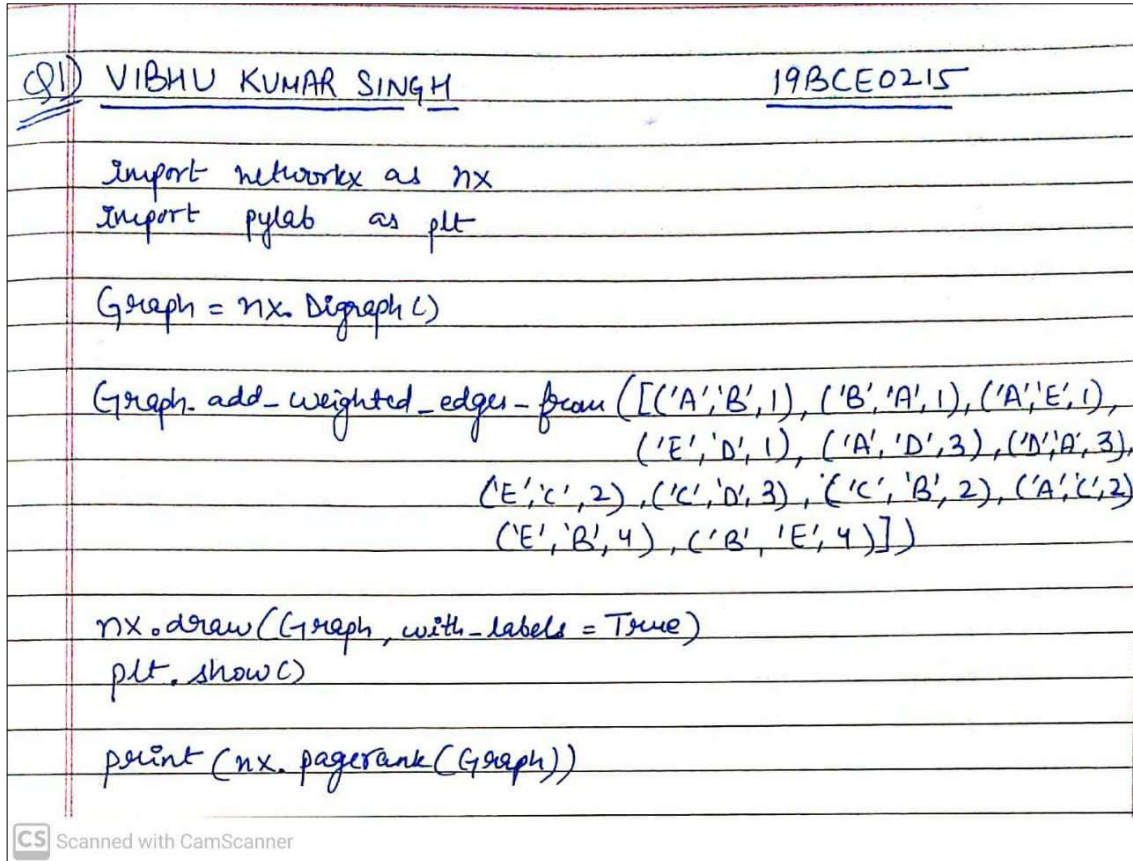 Q1) VIBHU KUMAR SINGH 19BCE0215
import networkx as nx
import pylab as plt
Graph = nx. Digraph()
Graph. add_weighted_edges_from ([('A','B',1), ('B','A',1), ('A','E',1),
('E','D',1), ('A','D',3), ('D','A',3),
('E','C',2), ('C','D',3), ('C','B',2), ('A','C',2)
('E','B',4), ('B','E',4)])
nx.draw(Graph, with_labels = True)
plt. show()
print (nx. pagerank(Graph))
CS Scanned with CamScanner